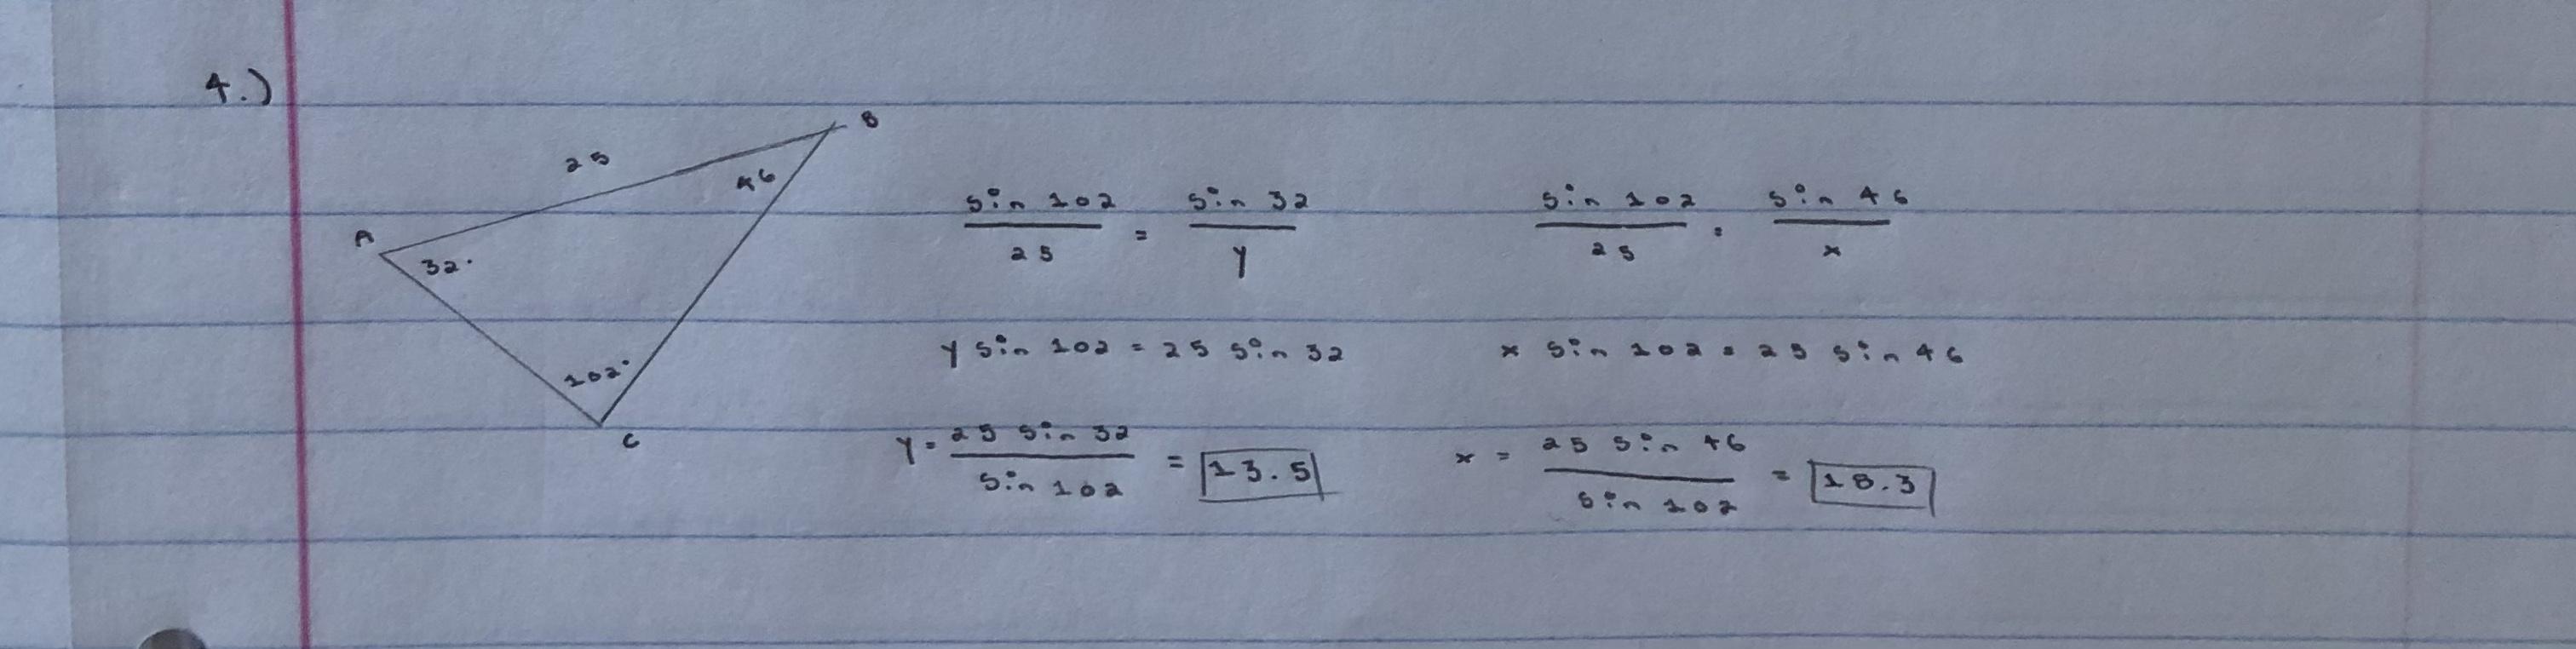 4.)
B
25
46
A
32°
102°
C
sin 102 / 25 = sin 32 / y
y sin 102 = 25 sin 32
y = 25 sin 32 / sin 102 = 13.5
sin 102 / 25 = sin 46 / x
x sin 102 = 25 sin 46
x = 25 sin 46 / sin 102 = 18.3